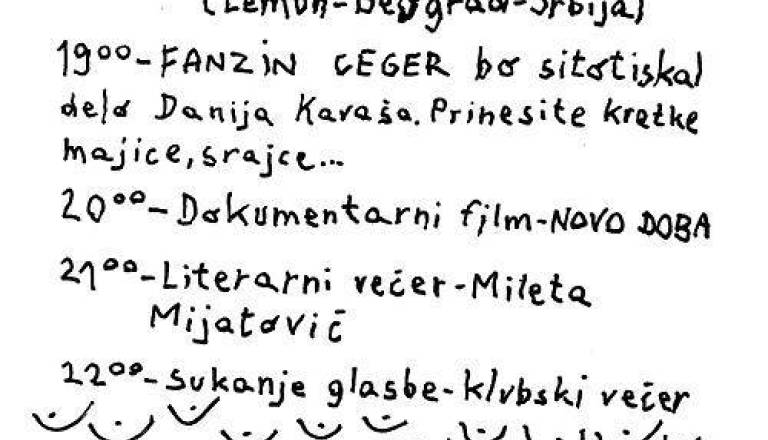 (Zemun-Beograd-Srbija)
19⁰⁰-FANZIN CEGER bo sitotiskal
delo Danija Kavaša. Prinesite kratke
majice, srajce...
20⁰⁰-Dokumentarni film-NOVO DOBA
21⁰⁰-Literarni večer-Mileta
Mijatovič
22⁰⁰-sukanje glasbe-klubski večer